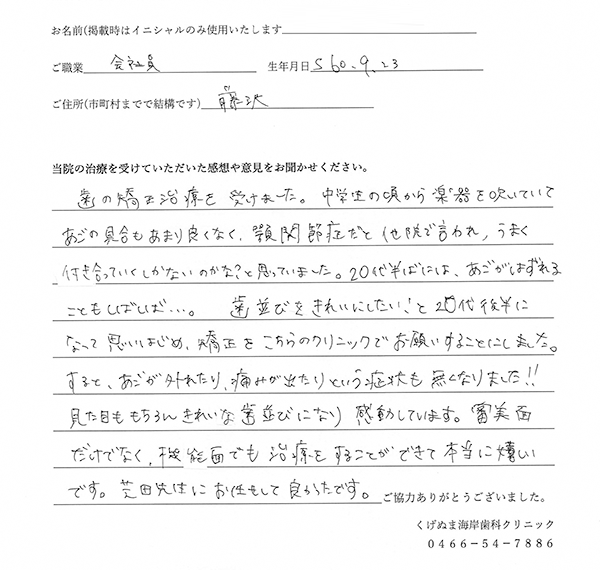 お名前(掲載時はイニシャルのみ使用いたします
ご職業 会社員 生年月日 S60.9.23
ご住所(市町村までで結構です) 藤沢
当院の治療を受けていただいた感想や意見をお聞かせください。
歯の矯正治療を受けました。中学生の頃から楽器を吹いていて
あごの具合もあまり良くなく、顎関節症だと他院で言われ、うまく
付き合っていくしかないのかな?と思っていました。20代半ばには、あごがはずれる
こともしばしば…。 歯並びをきれいにしたい!と20代後半に
なって思いはじめ、矯正をこちらのクリニックでお願いすることにしました。
すると、あごが外れたり、痛みが出たりという症状も無くなりました!!
見た目ももちろんきれいな歯並びになり感動しています。審美面
だけでなく、機能面でも治療をすることができて本当に嬉しい
です。芝田先生にお任せして良かったです。 ご協力ありがとうございました。
くげぬま海岸歯科クリニック
0466-54-7886